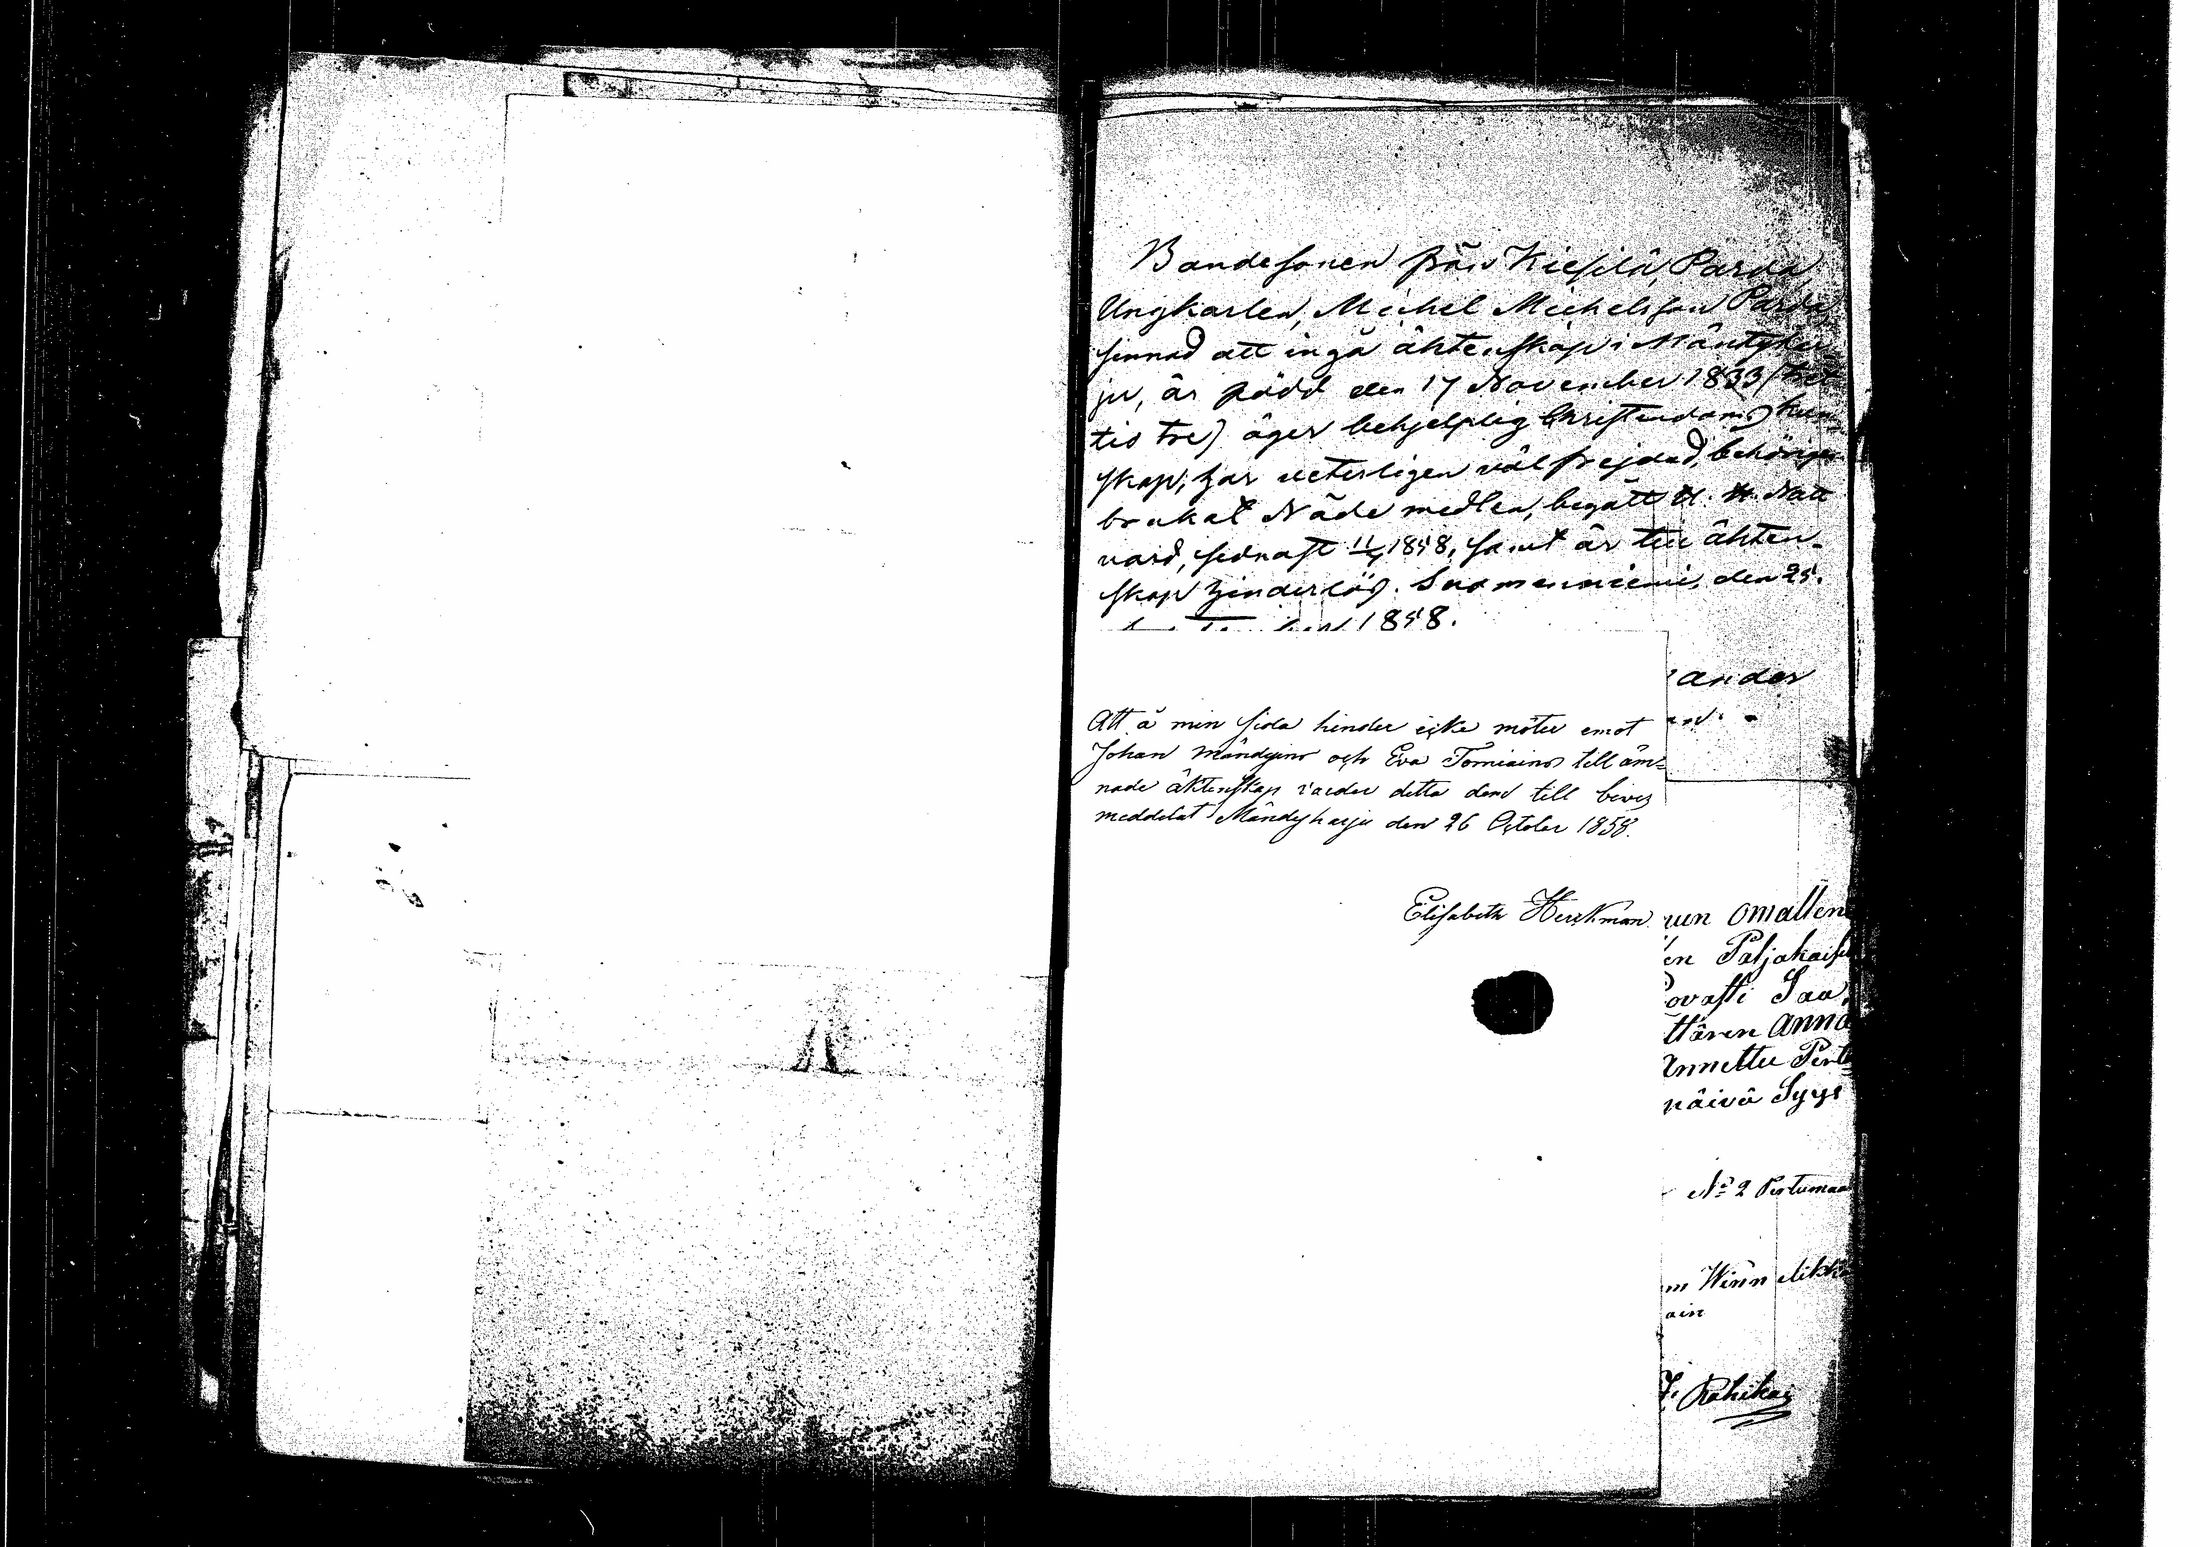 Bondesonen från Kiesilä, Parda
Ungkarlen, Michel Michelsson Parda
sinnad att ingå ähtenskap i Mäntyhar=
ju, är född den 17 November 1833 (tret
tio tre) äger behjelplig Christendoms kun=
skap, har veterligen väl frejdad, behörigen
brukat Nåde medlen, begått H. H. Natt
vard, sednast 11/4 1858, samt är till ähten-
skap hinderlös. Suomenniemi, den 25.
1858.
ander
Att å min sida hinder icke möter emot
Johan Mändyins och Eva Torniains till äm=
nade äktenskap varder detta dem till bevis
meddelat Mändyharju den 26 October 1858.
Elisabeth Herckman
uen omallen
en Paljakaise
ovasti Saa,
ttären Anna
Annettu Pert
päivä Syys
No 2 Pertumaa
m Winn Mikko
ain